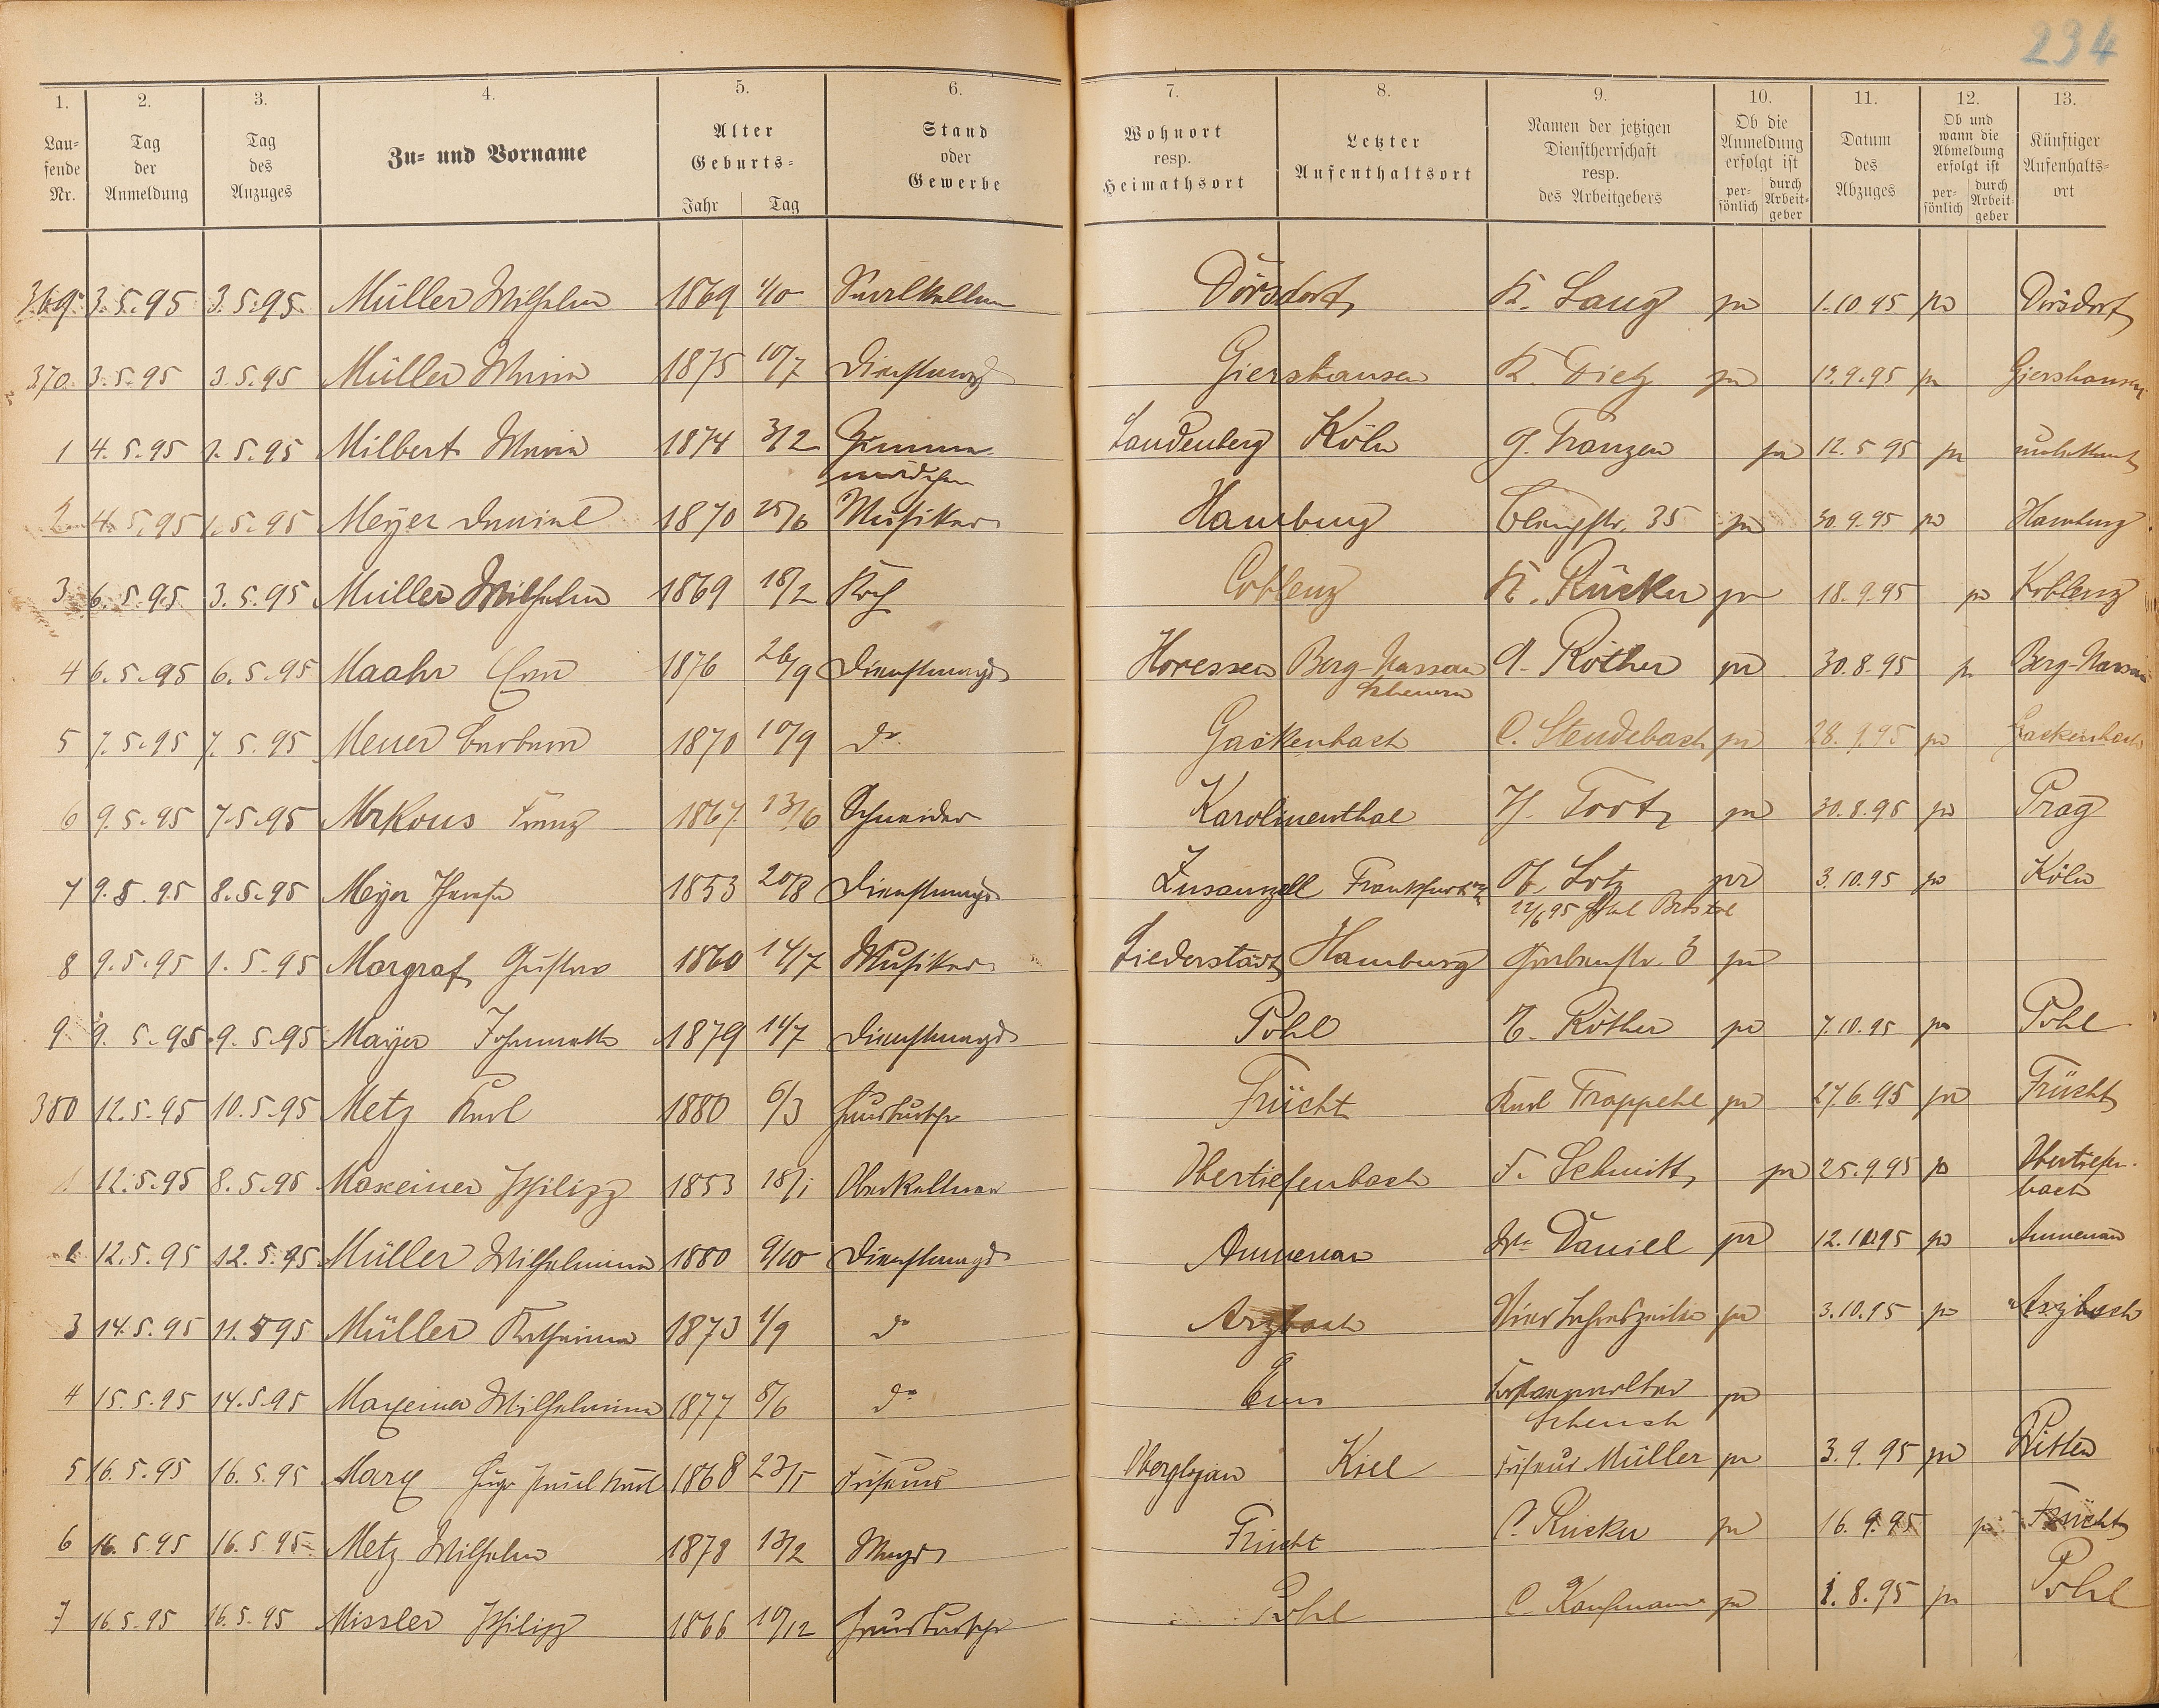 234
1. 2. 3. 4. 5. 6. 7. 8. 9. 10. 11. 12. 13.
Lau=
fende
Nr.
Tag
der
Anmeldung
Tag
des
Anzuges
Zu= und Vorname
Alter
Geburts=
Jahr Tag
Stand
oder
Gewerbe
Wohnort
resp.
Heimathsort
Letzter
Aufenthaltsort
Namen der jetzigen
Dienstherrschaft
resp.
des Arbeitgebers
Ob die
Anmeldung
erfolgt ist
per=
sönlich
durch
Arbeit=
geber
Datum
des
Abzuges
Ob und
wann die
Abmeldung
erfolgt ist
per=
sönlich
durch
Arbeit=
geber
Künftiger
Aufenthalts=
ort
369 3.5.95 3.5.95 Müller Wilhelm 1869 1/10 Saalkellner Dörsdorf K. Lang pr 1.10.95 pr Dörsdorf
370 3.5.95 3.5.95 Müller Maria 1875 10/7 Dienstmagd Giershausen K. Dietz pr 13.9.95 pr Giershausen
1 4.5.95 1.5.95 Milbert Maria 1874 3/2 Zimmer Landenberg Köln G. Franzen pr 12.5.95 pr unbekannt
mädchen
2 4.5.95 1.5.95 Meyer Daniel 1870 25/6 Musiker Hamburg 35 pr 30.9.95 pr Hamburg
3 6.5.95 3.5.95 Müller Wilhelm 1869 18/2 Koch Coblenz K. Rücker pr 18.9.95 pr Koblenz
4 6.5.95 6.5.95 Maahr 1876 26/9 Dienstmagd Horessen Berg-Nassau Röther pr 30.8.95 pr Berg-Nassau
Scheuern
5 7.5.95 7.5.95 Meuer Barbara 1870 10/9 do Gackenbach C. Steudebach pr 28.9.95 pr Gackenbach
6 9.5.95 7.5.95 Mrkous Franz 1867 13/6 Schneider Karolinenthal 30.8.95 pr Prag
7 9.5.95 8.5.95 Meyer 1853 20/8 Dienstmagd Frankfurt Lotz pr 3.10.95 pr Köln
22/6 95
8 9.5.95 1.5.95 Margraf Gustav 1860 14/7 Musiker Liederstädt Hamburg Grabenstr. 3 pr
9 9.5.95 9.5.95 Mayer Johannette 1879 14/7 Dienstmagd Pohl Röther pr 7.10.95 pr Pohl
380 12.5.95 10.5.95 Metz Karl 1880 6/3 Hausbursche Frücht Karl Trappehl pr 27.6.95 pr Frücht
1 12.5.95 8.5.95 Maxeiner Philipp 1853 18/1 Oberkellner Obertiefenbach F. Schmitt pr 25.9.95 pr Obertiefen-
bach
2 12.5.95 12.5.95 Müller Wilhelmina 1880 9/10 Dienstmagd Aumenau Daniel pr 12.10.95 pr Aumenau
3 14.5.95 11.5.95 Müller Katharina 1873 1/9 do Arzbach Vier Jahreszeiten pr 3.10.95 pr Arzbach
4 15.5.95 14.5.95 Maxeiner Wilhelmina 1877 8/6 do Ems pr
5 16.5.95 16.5.95 Marx Hugo Paul Karl 1868 23/5 Friseur Oberglogau Kiel Friseur Müller pr 3.9.95 pr Witten
6 16.5.95 16.5.95 Metz Wilhelm 1878 13/2 Frücht C. Rücker pr 16.9.95 pr Frücht
7 16.5.95 16.5.95 Missler Philipp 1866 10/12 Hausbursche Pohl C. Kaufmann pr 1.8.95 pr Pohl